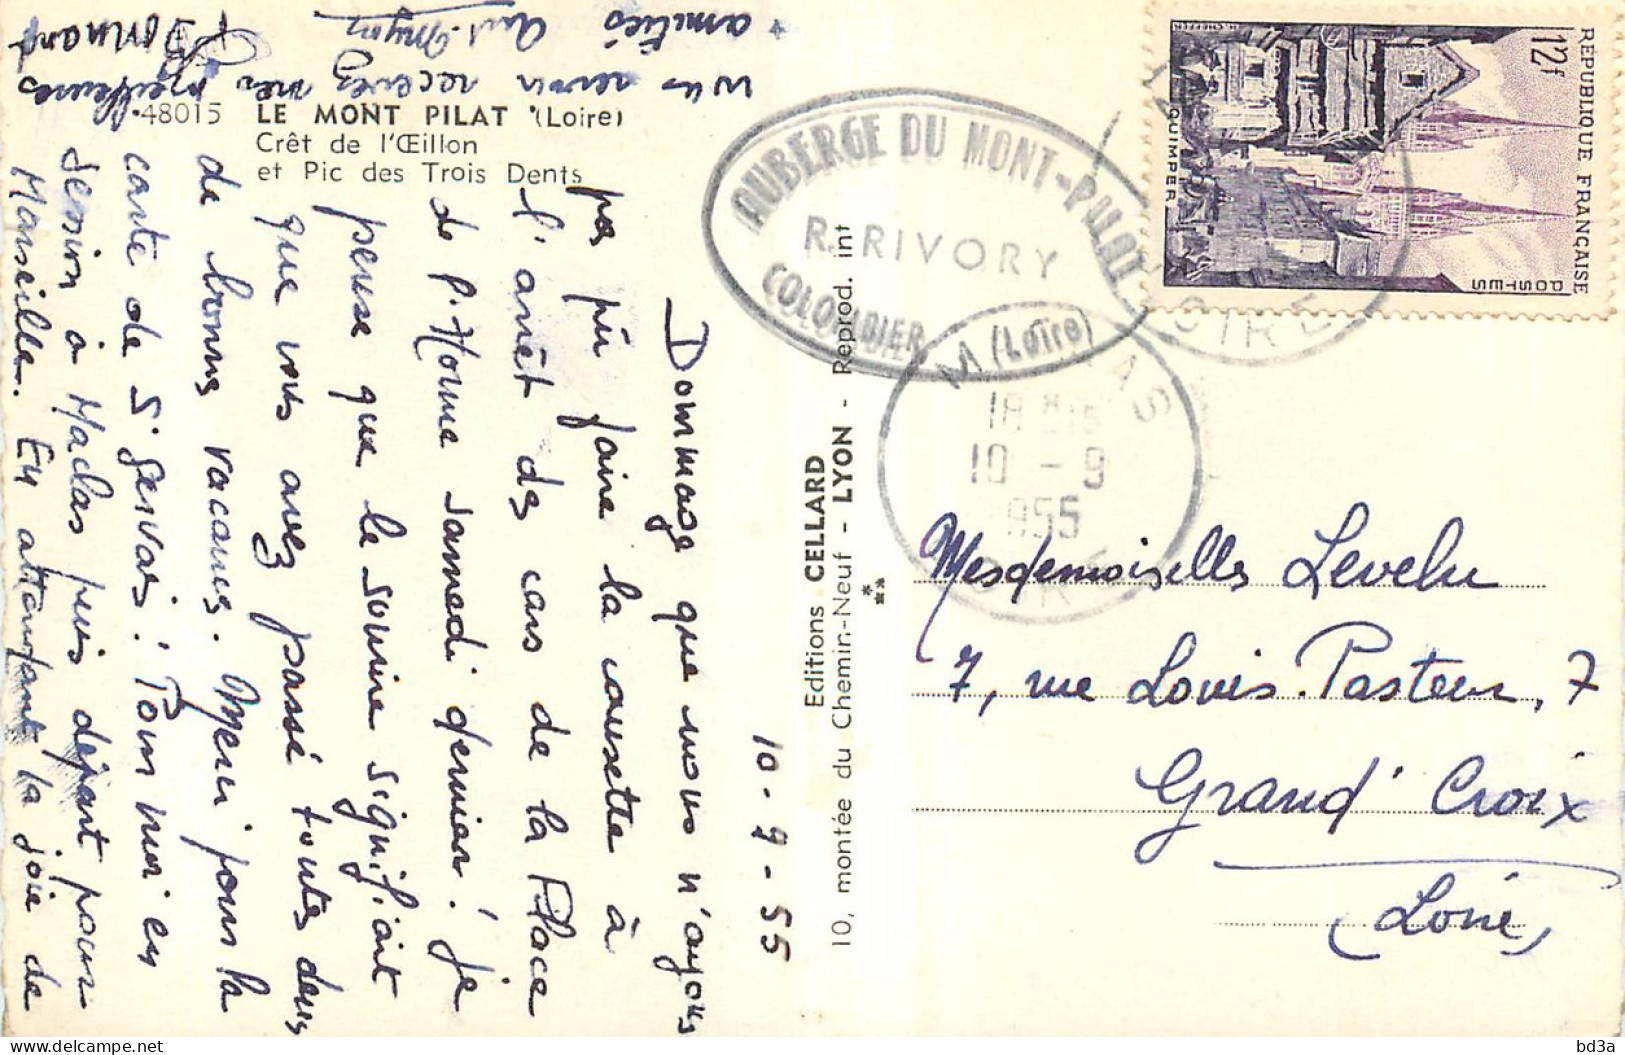 48015 LE MONT PILAT (Loire)
Crêt de l'Œillon
et Pic des Trois Dents
10-9-55
Dommage que nous n'ayons
pas pu faire la causette à
l'arrêt des cars de la Place
de P. Horme samedi dernier! Je
pense que le sourire signifiait
que vous avez passé toutes deux
de bonnes vacances. Merci pour la
carte de St Gervais! Pour moi en
session à Maclas puis départ pour
Marseille. En attendant la joie de
vous revoir recevez mes meilleures
amitiés
Editions CELLARD
10, montée du Chemin-Neuf - LYON - Reprod. int
AUBERGE DU MONT-PILAT
R. RIVORY
COLOMBIER
(Loire)
18 H 15
10 - 9
1955
LOIRE
RÉPUBLIQUE FRANÇAISE
POSTES
12f
QUIMPER
Mesdemoiselles Levelu
7, rue Louis Pasteur, 7
Grand' Croix
(Loire)
bd3a